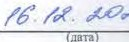 16.12.202
(дата)